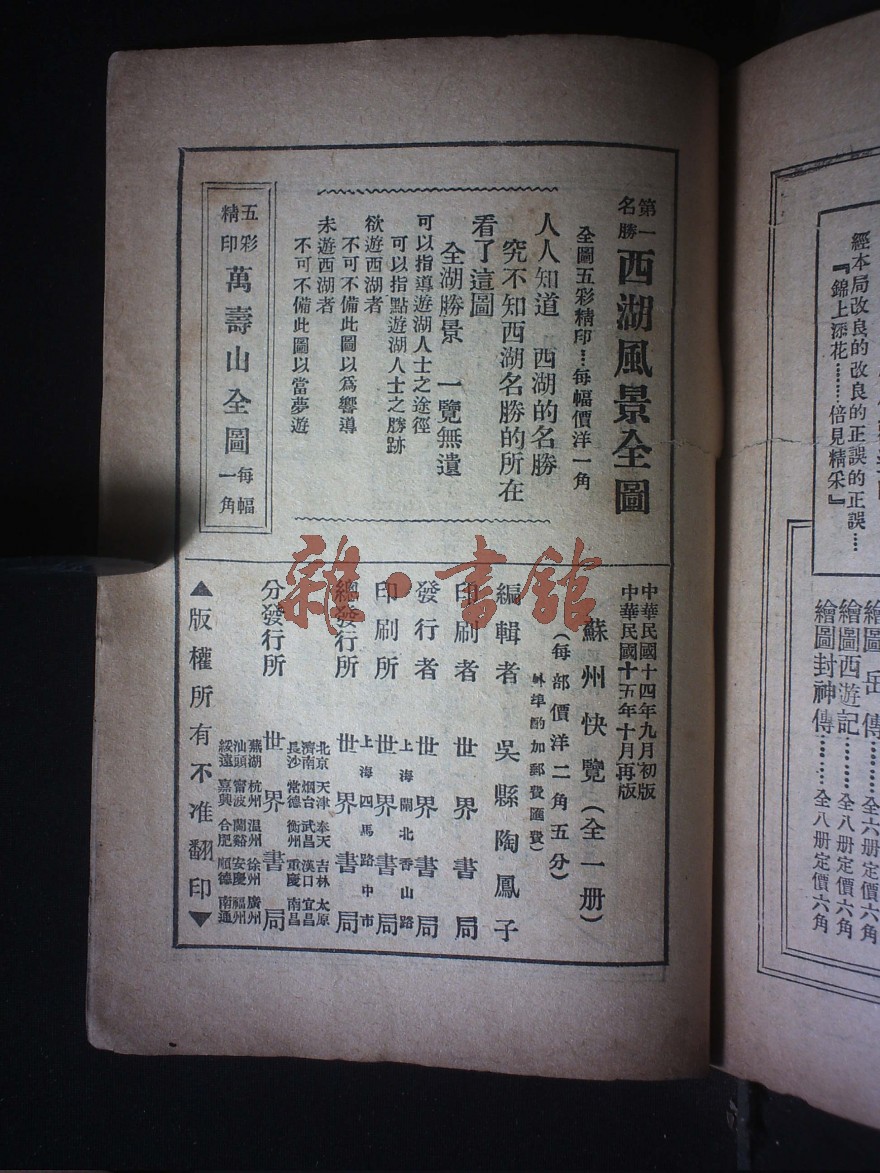 經本局改良的改良的正誤的正誤……
『錦上添花………倍見精采』
繪圖岳傳………全六册定價六角
繪圖西遊記………全八册定價六角
繪圖封神傳………全八册定價六角
第一名勝
西湖風景全圖
全圖五彩精印……每幅價洋一角
人人知道 西湖的名勝
究不知西湖名勝的所在
看了這圖
全湖勝景 一覽無遺
可以指導遊湖人士之途徑
可以指點遊湖人士之勝跡
欲遊西湖者
不可不備此圖以爲響導
未遊西湖者
不可不備此圖以當夢遊
五彩精印 萬壽山全圖 每幅一角
中華民國十四年九月初版
中華民國十五年十月再版
蘇州快覽(全一册)
(每部價洋二角五分)
外埠酌加郵費匯費)
編輯者 吳縣陶鳳子
印刷者 世界書局
發行者 世界書局
上海閘北香山路
印刷所 世界書局
上海四馬路中市
總發行所 世界書局
北京 天津 奉天 吉林 太原
濟南 烟台 武昌 漢口 宜昌
長沙 常德 衡州 重慶 南昌
分發行所 世界書局
蕪湖 杭州 温州 徐州 廣州
汕頭 甯波 蘭谿 安慶 福州
綏遠 嘉興 合肥 順德 南通
▲版權所有不准翻印▼
雜·書館